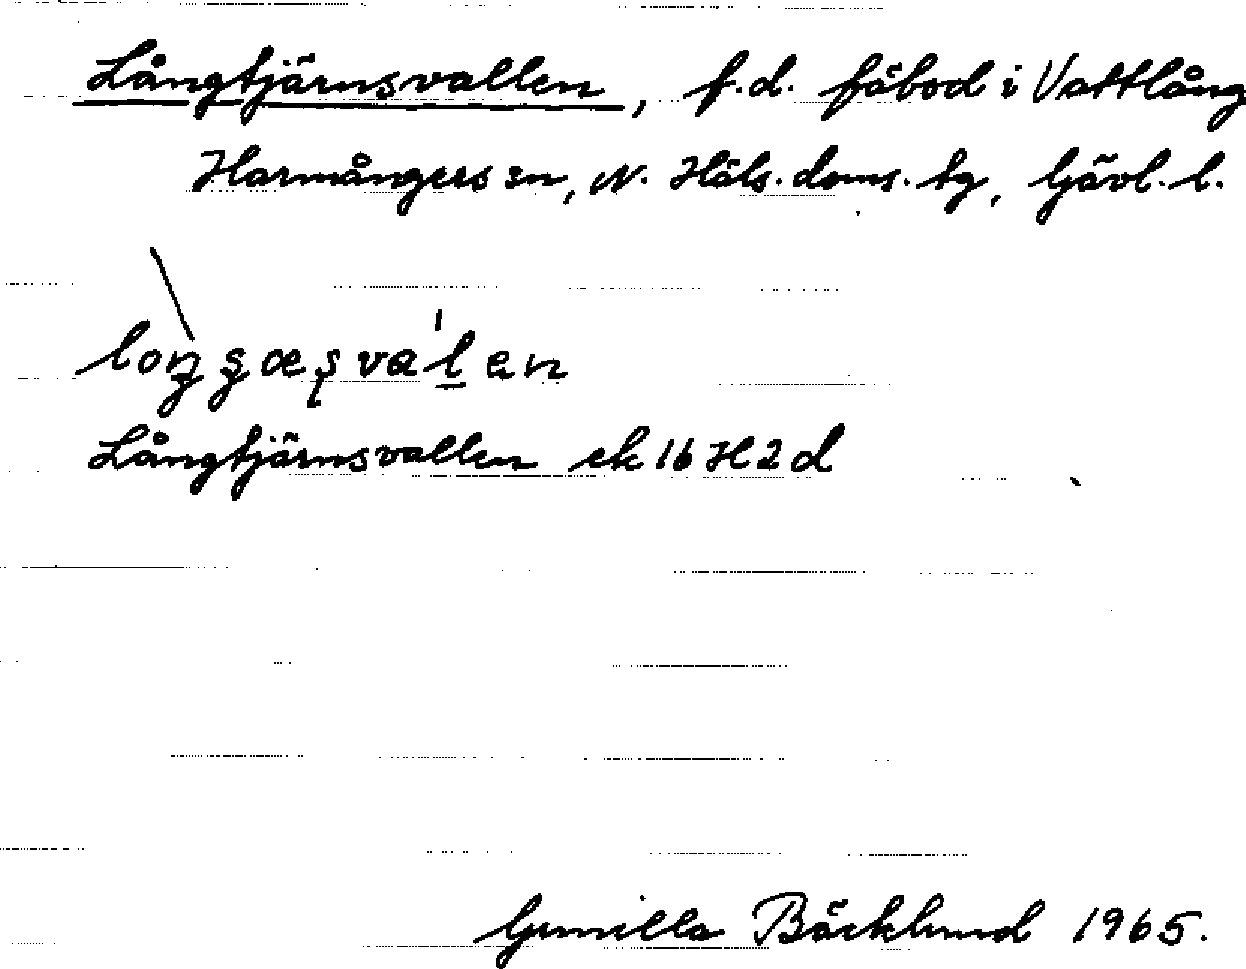 Långtjärnsvallen, f.d. fäbod i Vattlång
Harmångers sn, N. Häls. doms. tg, Gävl. l.
Långtjärnsvallen ek 16 H 2 d
Gunilla Bäcklund 1965.